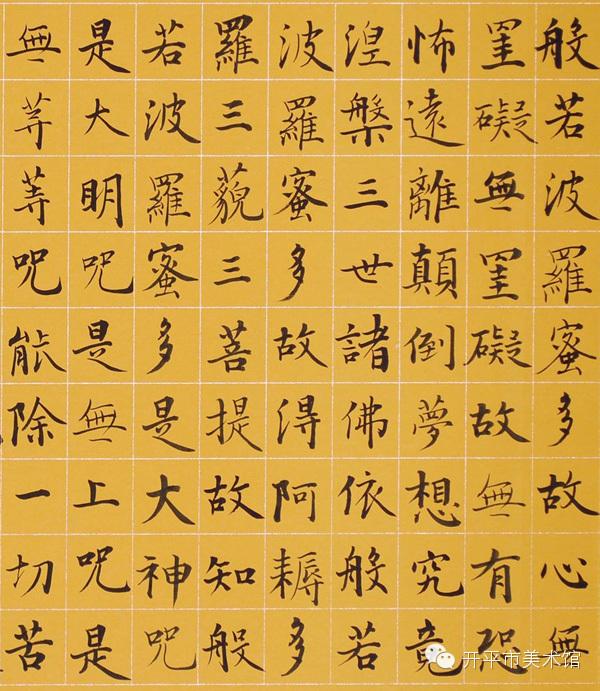 般若波羅蜜多故心無
罣礙無罣礙故無有恐
怖遠離顛倒夢想究竟
涅槃三世諸佛依般若
波羅蜜多故得阿耨多
羅三藐三菩提故知般
若波羅蜜多是大神咒
是大明咒是無上咒是
無等等咒能除一切苦
开平市美术馆